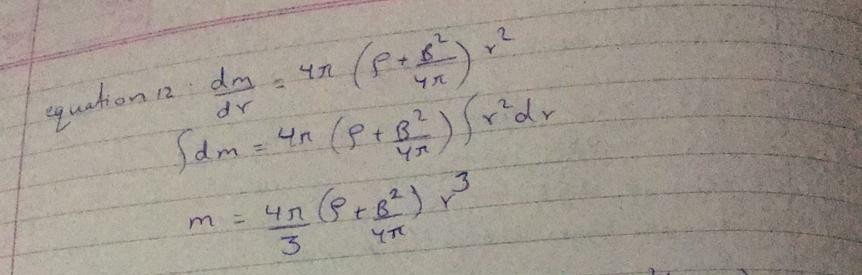 equation 12 : dm/dr = 4π (ρ + B²/4π) r²
∫dm = 4π (ρ + B²/4π) ∫r²dr
m = 4π/3 (ρ + B²/4π) r³